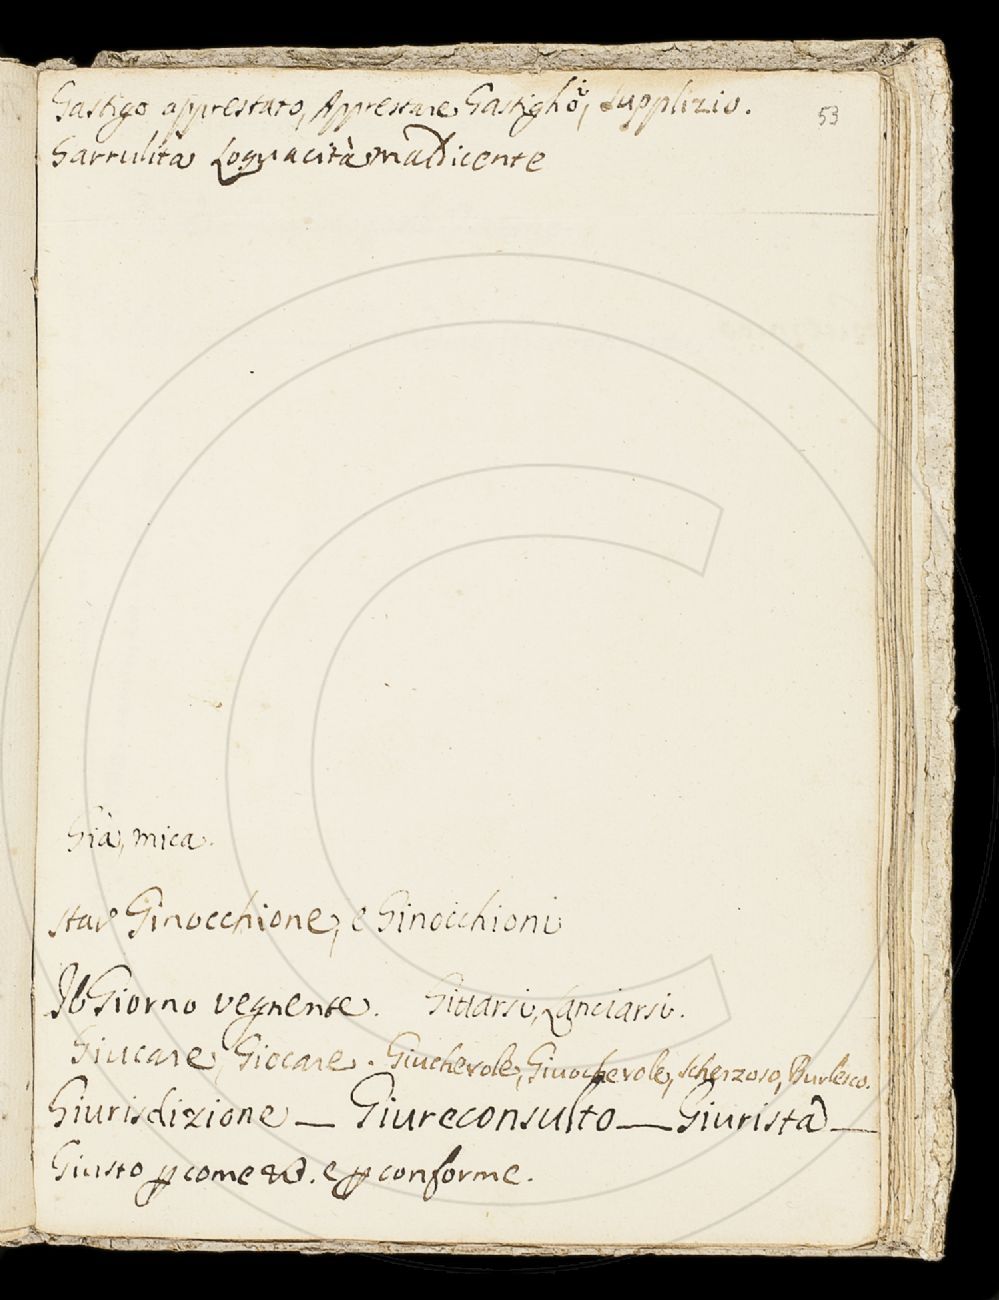 Gastigo apprestato, Apprestare Gastigho, supplizio.
53
Garrulita Loquacità maldicente
Già, mica.
star Ginocchione, e Ginocchioni
Il Giorno vegnente. Gittarsi, Lanciarsi.
Giucare, Giocare. Giuchevole, Giuochevole, scherzoso, Burlesco.
Giurisdizione — Giureconsulto — Giurista —
Giusto p come . e p conforme.